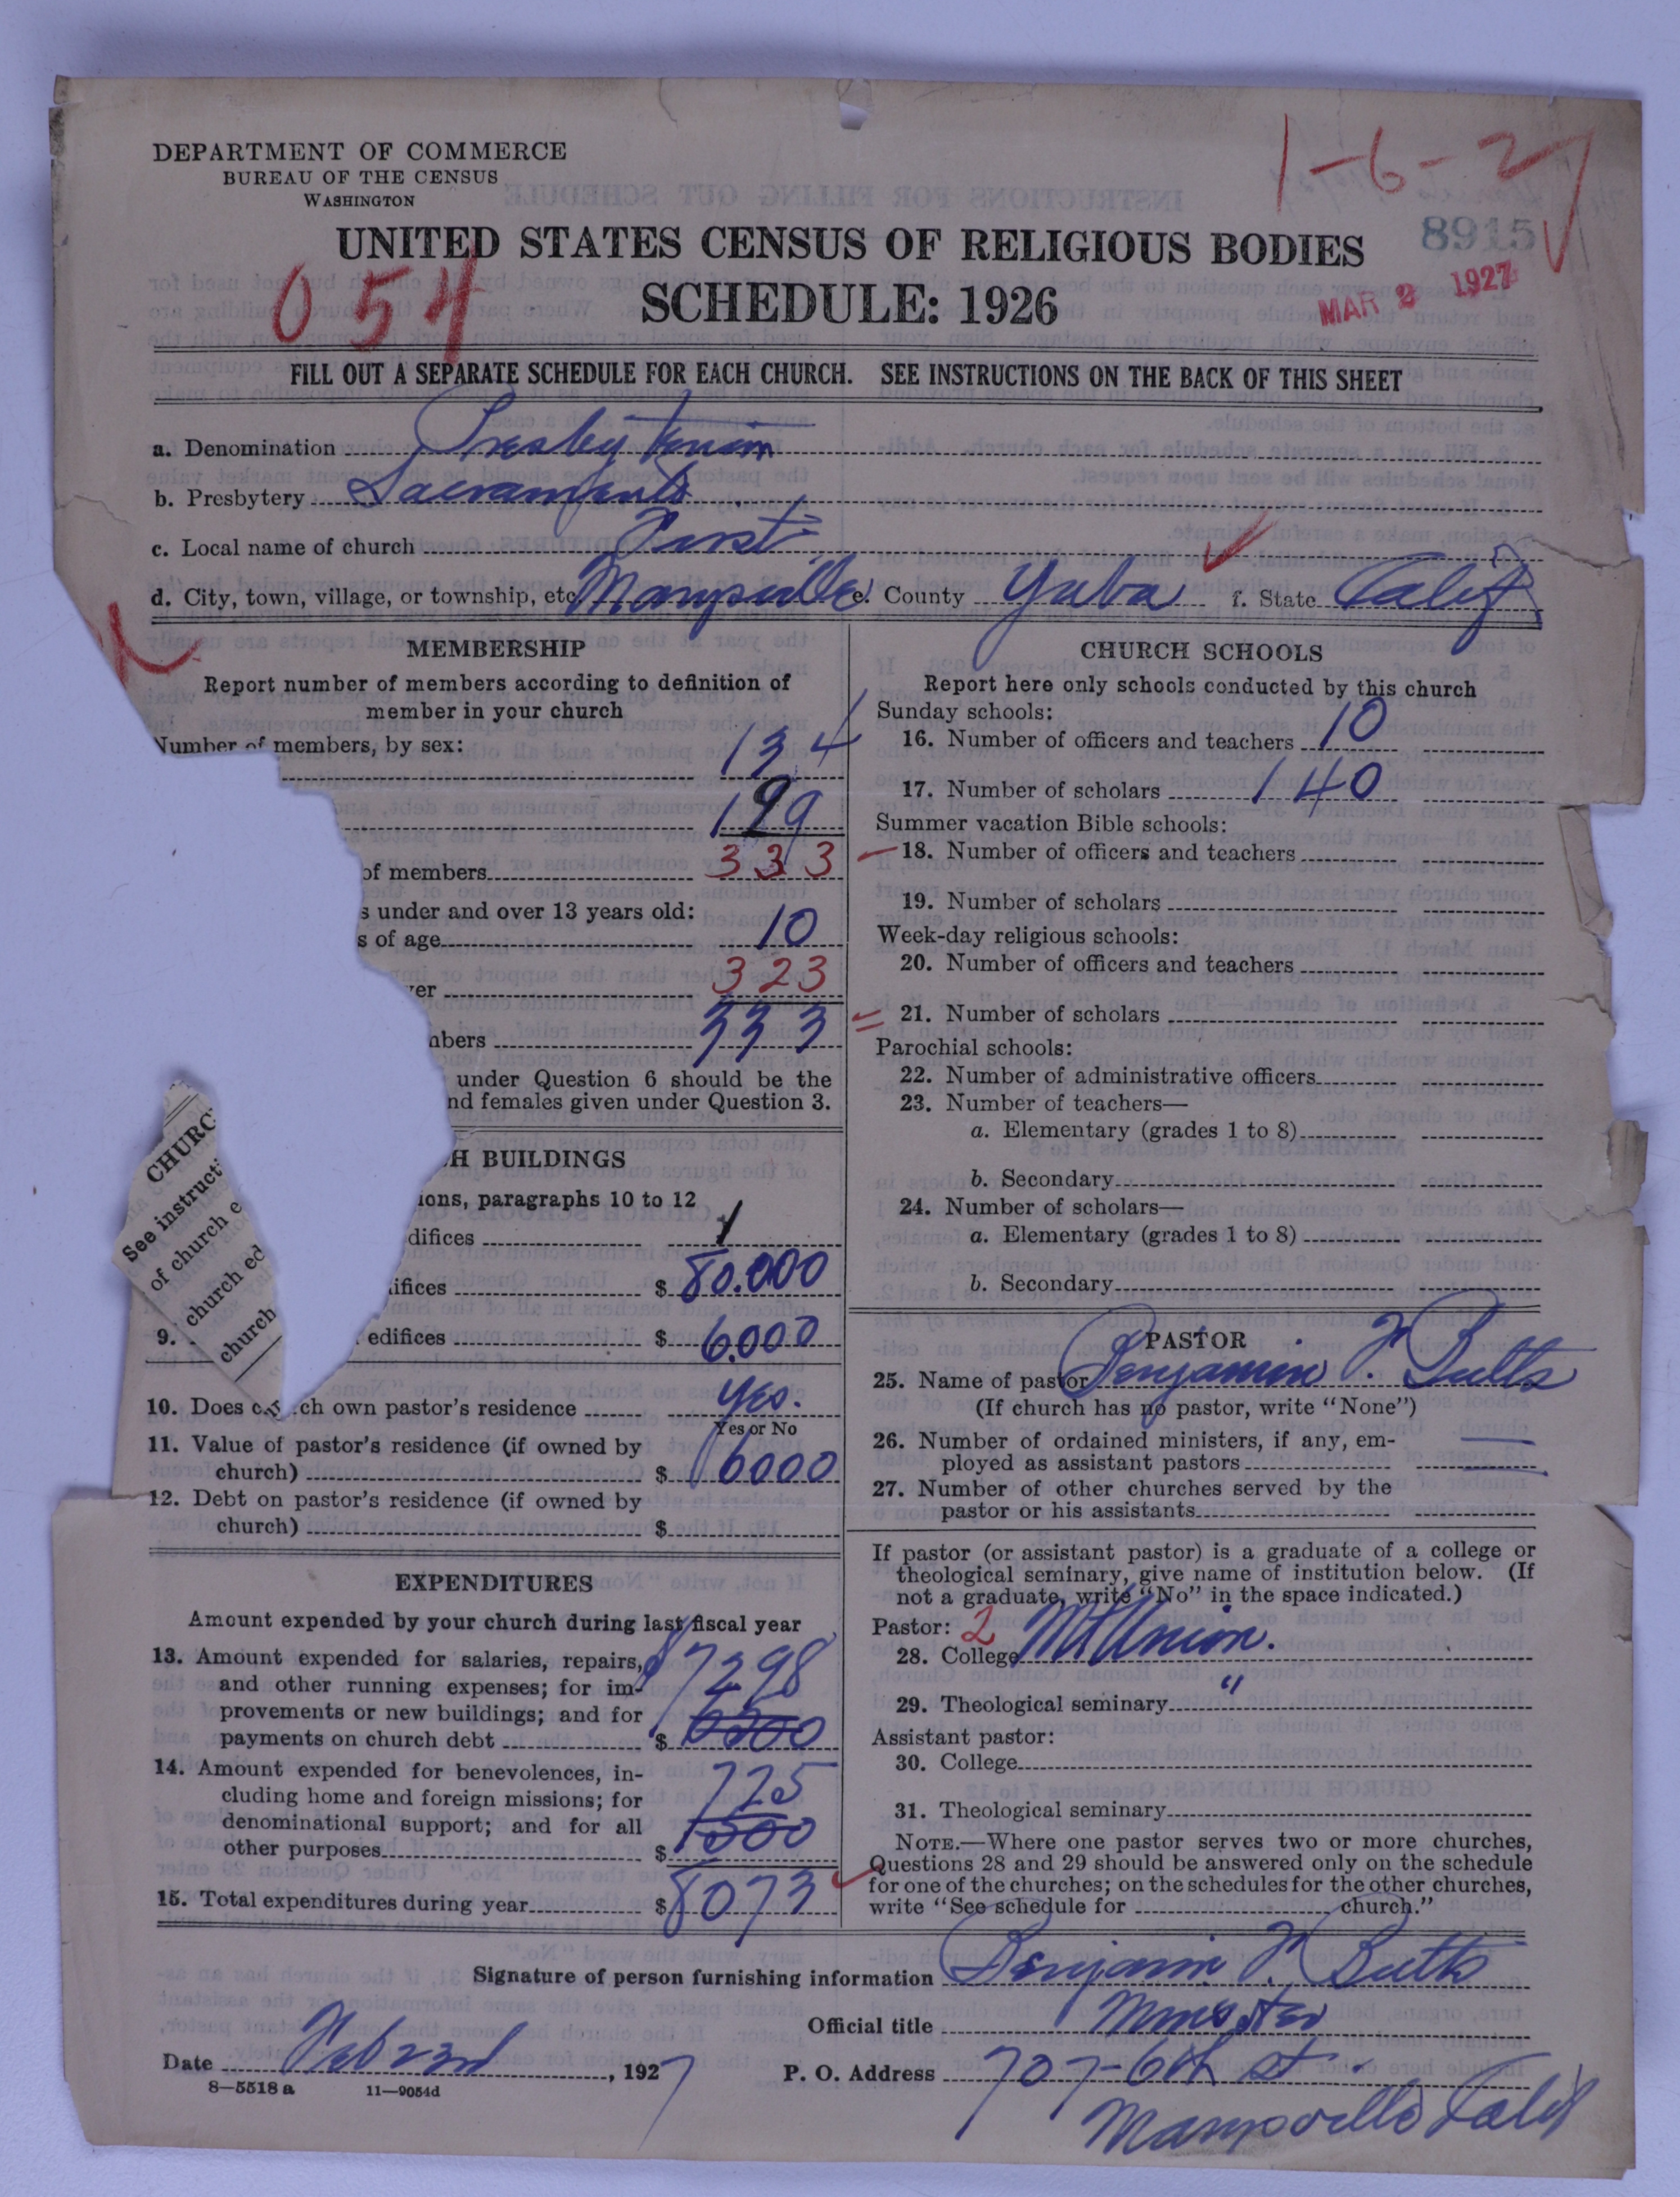 1-6-27
DEPARTMENT OF COMMERCE
BUREAU OF THE CENSUS
WASHINGTON
8915
UNITED STATES CENSUS OF RELIGIOUS BODIES
054
SCHEDULE: 1926
MAR 2 1927
FILL OUT A SEPARATE SCHEDULE FOR EACH CHURCH. SEE INSTRUCTIONS ON THE BACK OF THIS SHEET
a. Denomination Presbyterian
b. Presbytery Sacramento
c. Local name of church First
d. City, town, village, or township, etc Marysville e. County Yuba f. State Calif
MEMBERSHIP
Report number of members according to definition of
member in your church
Number of members, by sex:
134
199
of members 333
s under and over 13 years old:
s of age 10
er 323
bers 333
under Question 6 should be the
nd females given under Question 3.
CHURC
See instruct
of church e
church ed
church
H BUILDINGS
ions, paragraphs 10 to 12
difices 1
ifices $ 80.000
9. edifices $ 6000
10. Does ch own pastor's residence Yes.
Yes or No
11. Value of pastor's residence (if owned by
church) $ 6000
12. Debt on pastor's residence (if owned by
church) $
EXPENDITURES
Amount expended by your church during last fiscal year
13. Amount expended for salaries, repairs,
and other running expenses; for im-
provements or new buildings; and for
payments on church debt $ 7298
14. Amount expended for benevolences, in-
cluding home and foreign missions; for
denominational support; and for all
other purposes $ 775 1500
15. Total expenditures during year $ 8073
CHURCH SCHOOLS
Report here only schools conducted by this church
Sunday schools:
16. Number of officers and teachers 10
17. Number of scholars 140
Summer vacation Bible schools:
18. Number of officers and teachers
19. Number of scholars
Week-day religious schools:
20. Number of officers and teachers
21. Number of scholars
Parochial schools:
22. Number of administrative officers
23. Number of teachers—
a. Elementary (grades 1 to 8)
b. Secondary
24. Number of scholars—
a. Elementary (grades 1 to 8)
b. Secondary
PASTOR
25. Name of pastor Benjamin F. Butts
(If church has no pastor, write "None")
26. Number of ordained ministers, if any, em-
ployed as assistant pastors
27. Number of other churches served by the
pastor or his assistants
If pastor (or assistant pastor) is a graduate of a college or
theological seminary, give name of institution below. (If
not a graduate, write "No" in the space indicated.)
Pastor: 2
28. College Mt Union.
29. Theological seminary "
Assistant pastor:
30. College
31. Theological seminary
NOTE.—Where one pastor serves two or more churches,
Questions 28 and 29 should be answered only on the schedule
for one of the churches; on the schedules for the other churches,
write "See schedule for church."
Signature of person furnishing information Benjamin F. Butts
Official title Minister
Date Feb 23rd, 1927 P. O. Address 707-6th St.
8—5518 a 11—9054d
Marysville Calif